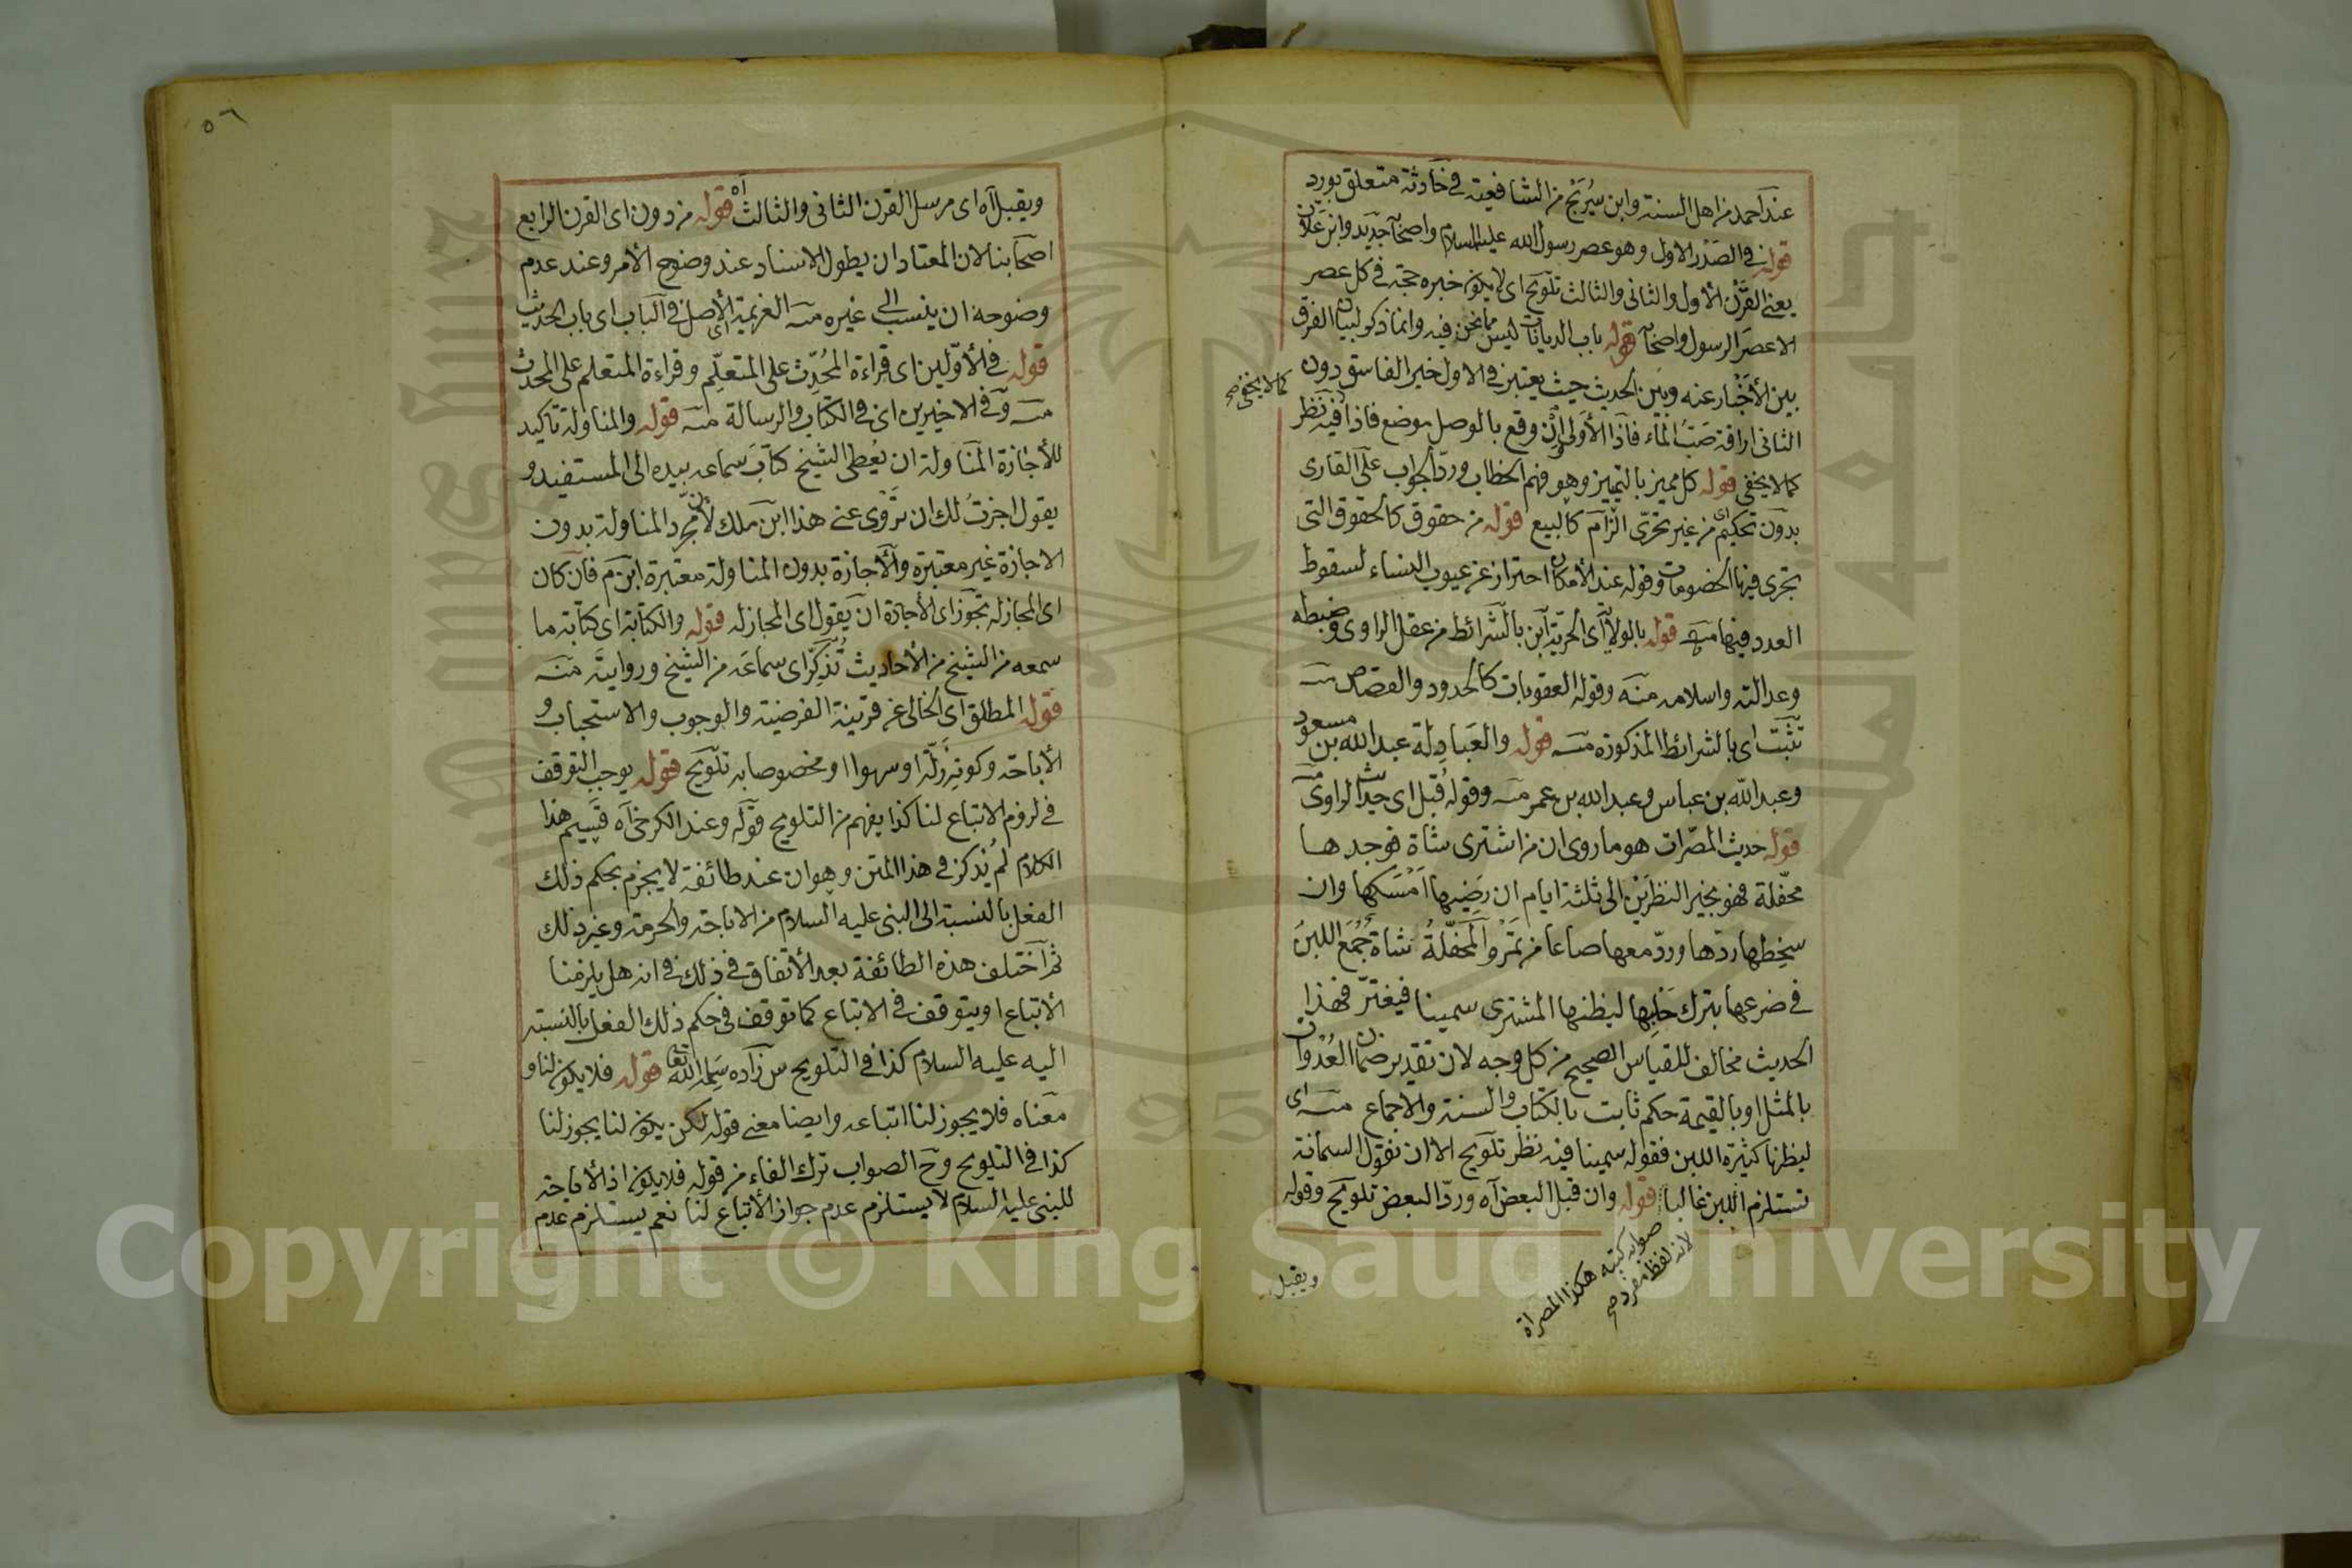 عند احمد من اهل السنة وابن سريج من الشافعية في حادثة متعلق بورد
قوله في الصدر الاول وهو عصر رسول الله عليه السلام واصحابه
يعني القرن الأول والثاني والثالث تلويح اى لا يكون خبره حجة في كل عصر
الا عصر الرسول واصحابه قوله باب الديانات ليس مما نحن فيه وانما ذكر لبيان الفرق
بين الأخبار عنه وبين الحديث حيث يعتبر في الاول خبر الفاسق دون
الثاني اراقة صب الماء فاذا الأولى وقع بالوصل موضع فاذا فيه نظر
كما لا يخفى صح
كما لا يخفى قوله كل مميز بالتمييز وهو فهم الخطاب ورد الجواب على القارى
بدون تحكيم اى من غير تحرى الزام كالبيع قوله من حقوق كالحقوق التى
تجرى فيها الخصومات وقوله عند الأمكان احتراز عن عيوب النساء لسقوط
العدد فيها منه قوله بالولاية اى الحرية ابن بالشرائط من عقل الراوى وضبطه
وعدالته واسلامه منه وقوله العقوبات كالحدود والقصاص منه
تثبت اى بالشرائط المذكورة منه قوله والعبادلة عبد الله بن مسعود
وعبد الله بن عباس وعبد الله بن عمر منه وقوله قبل اى حديث الراوى
قوله حديث المصرات هو ما روى ان من اشترى شاة فوجدها
محفلة فهو بخير النظرين الى ثلثة ايام ان رضيها امسكها وان
سخطها ردها ورد معها صاعا من تمر والمحفلة شاة جمع اللبن
في ضرعها بترك حلبها ليظنها المشترى سمينا فيغتر فهذا
الحديث مخالف للقياس الصحيح من كل وجه لان تقدير ضمان العدوان
بالمثل او بالقيمة حكم ثابت بالكتاب والسنة والاجماع منه اى
ليظنها كثيرة اللبن فقوله سمينا فيه نظر تلويح الا ان نقول السمانة
تستلزم اللبن غالبا قوله وان قبل البعض آه ورد البعض تلويح وقوله
صوابه كتبه هكذا المصراة
لانه لفظ مفرد صح
ويقبل
٥٦
ويقبل آه اى مرسل القرن الثانى والثالث آه قوله من دون اى القرن الرابع
اصحابنا لان المعتاد ان يطول الاسناد عند وضوح الأمر وعند عدم
وضوحه ان ينسب الى غيره منه العزيمة اى الأصل في الباب اى باب الحديث
قوله في الأولين اى قراءة المحدث على المتعلم وقراءة المتعلم على المحدث
منه وفي الاخيرين اى في الكتاب والرسالة منه قوله والمناولة تاكيد
للأجازة المناولة ان يعطى الشيخ كتاب سماعه بيده الى المستفيد و
يقول اجزت لك ان تروى عنى هذا ابن ملك لأن مجرد المناولة بدون
الاجازة غير معتبرة والأجازة بدون المناولة معتبرة ابن م فان كان
اى المجاز له تجوز اى الأجازة ان يقول اى المجاز له قوله والكتابة اى كتابة ما
سمعه من الشيخ من الأحاديث تذكر اى سماعه من الشيخ وروايته منه
قوله المطلق اى الخالى عن قرينة الفرضية والوجوب والاستحباب و
الأباحة وكونه زلة او سهوا او مخصوصا به تلويح قوله يوجب التوقف
في لزوم الاتباع لنا كذا يفهم من التلويح قوله وعند الكرخى آه قسيم هذا
الكلام لم يذكر في هذا المتن وهو ان عند طائفة لا يجزم بحكم ذلك
الفعل بالنسبة الى النبى عليه السلام من الاباحة والحرمة وغير ذلك
ثم اختلف هذه الطائفة بعد الأتفاق في ذلك في انه هل يلزمنا
الأتباع او يتوقف في الاتباع كما توقف في حكم ذلك الفعل بالنسبة
اليه عليه السلام كذا في التلويح س زاده سلمه الله تعالى قوله فلا يكون لنا و
معناه فلا يجوز لنا اتباعه وايضا معنى قوله لكن يكون لنا يجوز لنا
كذا في التلويح وح الصواب ترك الفاء من قوله فلا يكون اذ الأباحة
للنبى عليه السلام لا يستلزم عدم جواز الأتباع لنا نعم يستلزم عدم
Copyright © King Saud University